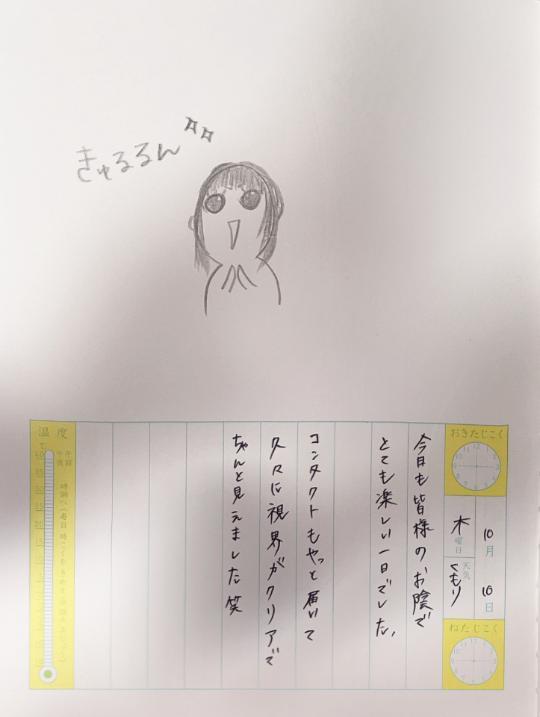 きゅるるん
おきたじこく
10月10日
木曜日
天気
くもり
ねたじこく
今日も皆様のお陰で
とても楽しい一日でした、
コンタクトもやっと届いて
久々に視界がクリアで
ちゃんと見えました笑
温度
午前
午後